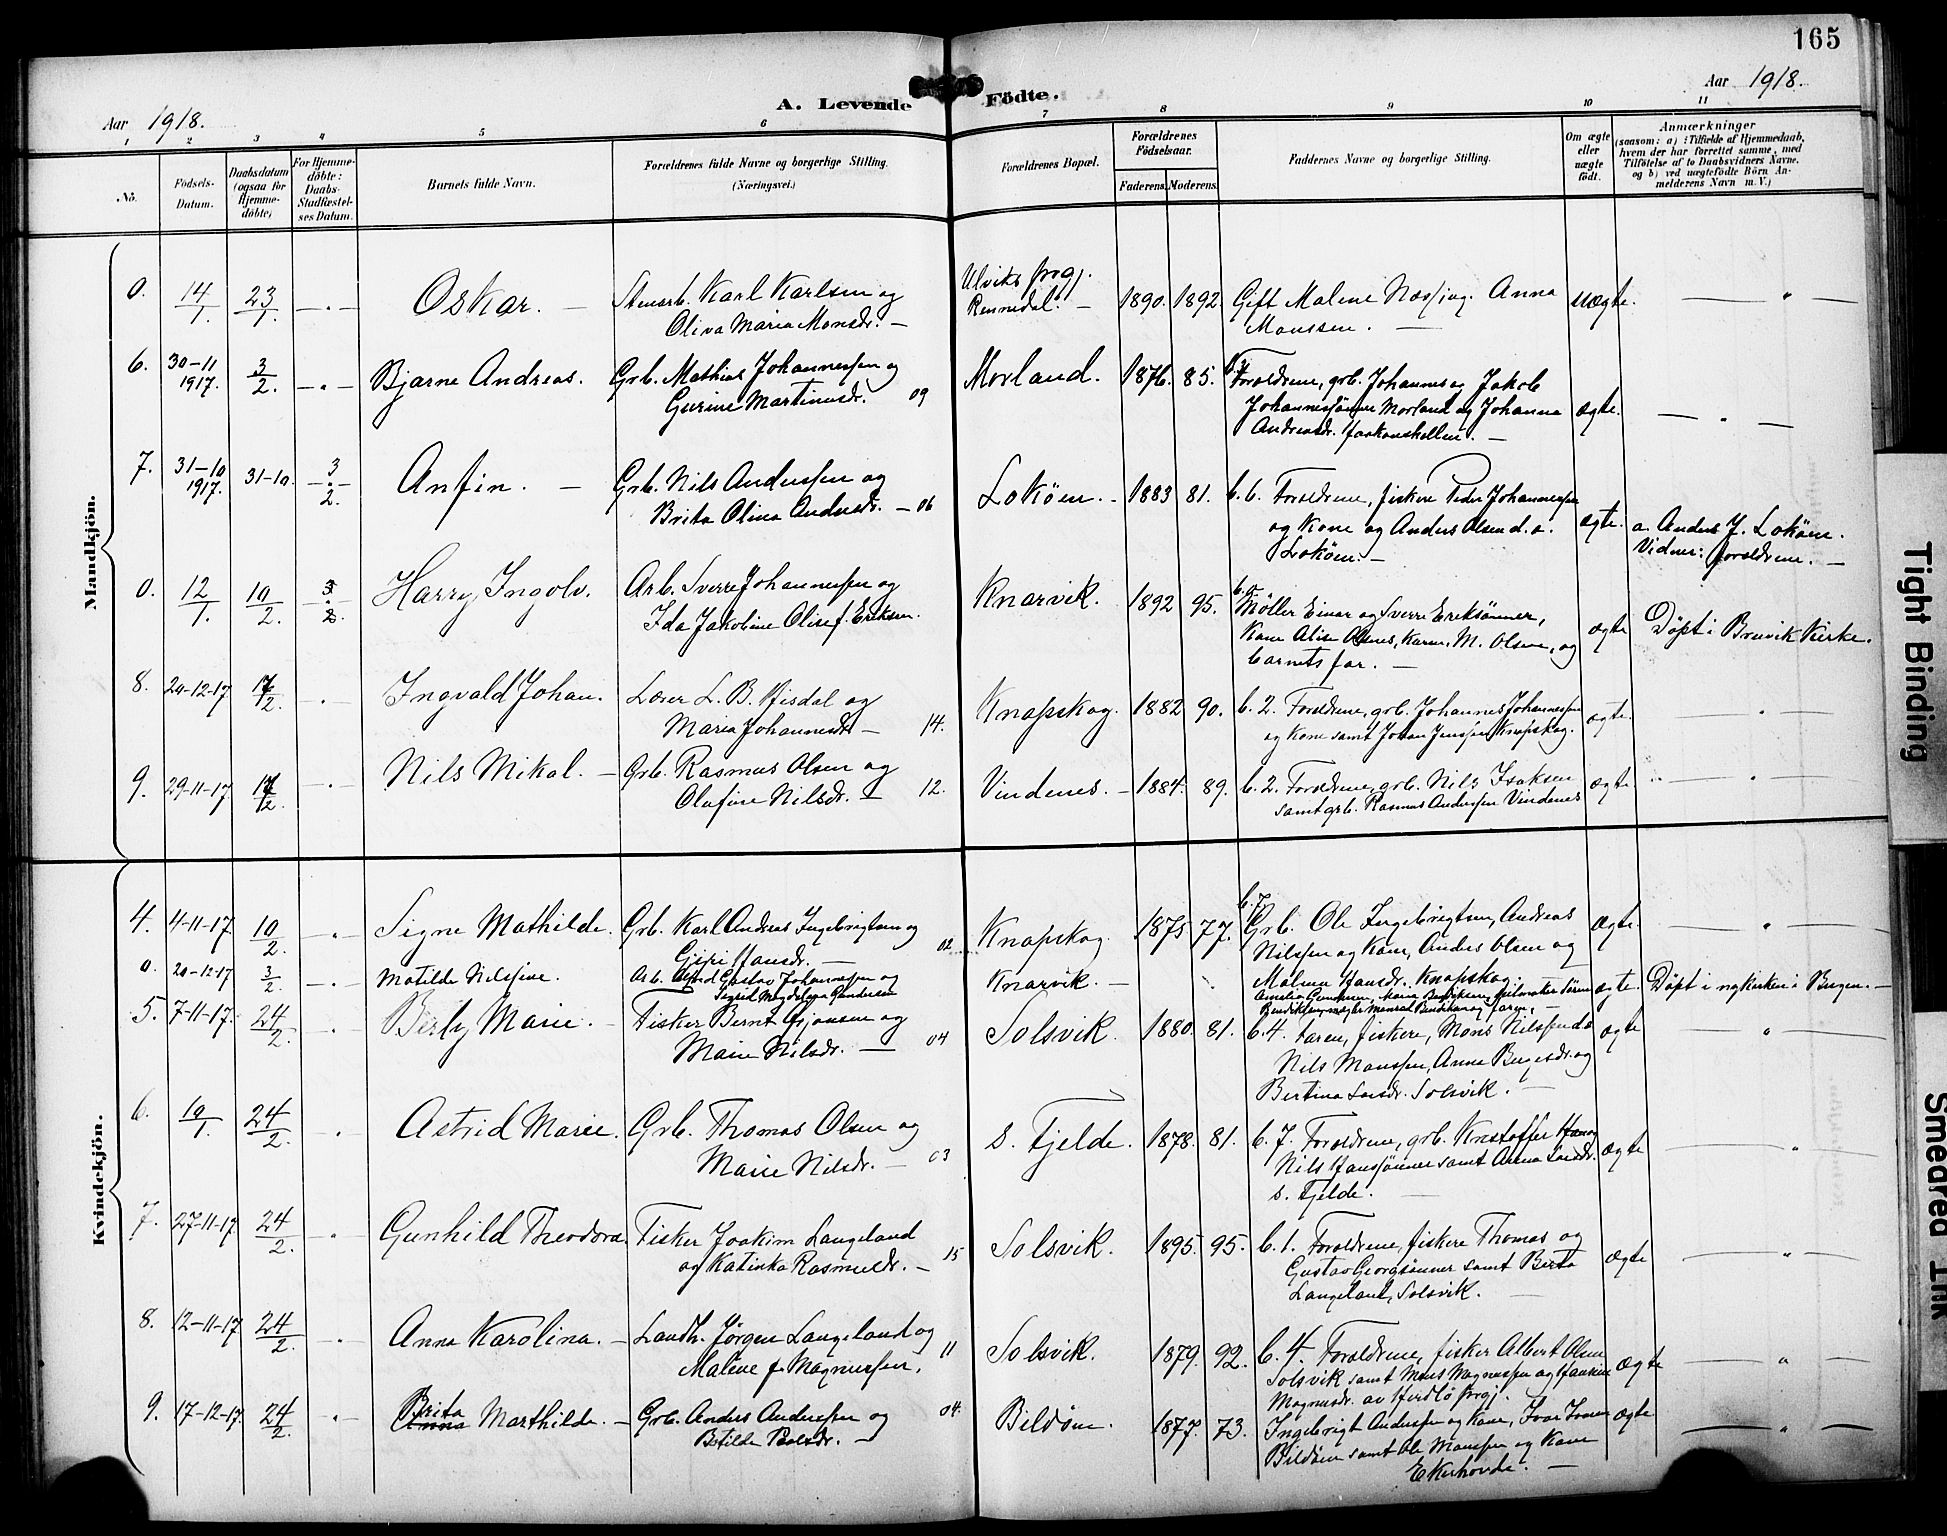 165
Aar 1918.
A. Levende Födte.
Aar 1918.
1 2 3 4 5 6 7 8 9 10 11
No.
Födsels-Datum.
Daabsdatum (ogsaa for Hjemmedöbte)
For Hjemmedöbte: Daabs-Stadfæstelses Datum.
Barnets fulde Navn.
Forældrenes fulde Navne og borgerlige Stilling. (Næringsvei.)
Forældrenes Bopæl.
Forældrenes Födselsaar.
Faderens. Moderens.
Faddernes Navne og borgerlige Stilling.
Om ægte eller uægte födt.
Anmærkninger
(saasom: a) i Tilfælde af Hjemmedaab, hvem der har forrettet samme, med Tilföielse af to Daabsvidners Navne, og b) ved uægtefödte Börn Anmelderens Navn m. V.)
Mandkjön.
0. 14/1. 23/1. — " — Oskar. — Stensrb. Karl Karlsen og Ulviks prgj. 1890. 1892. Gift Malene Næss, ug. Anna uægte. — " —
Oliva Maria Monsdr. — Rennedal. — Monssen. —
6. 30-11 1917. 3/2. — " — Bjarne Andreas. Grb. Mathias Johannessen og Morland. 1876. 85. Forældrene, grb. Johannes og Jakob ægte. — " —
Gurine Martinusdr. 09 Johannessønner Morland og Johanna
Andreasdr. Haakonshellen. —
7. 31-10 1917. 31-10. 3/2. Anfin. — Grb. Nils Anderssen og Lokøen. — 1883 81. b. 6. Forældrene, fiskere Peder Johannessen ægte. a. Anders J. Lokøen.
Brita Olina Andersdr. — 06 og Kone og Anders Olsen d. o. Vidner: forældrene. —
Lokøen. —
0. 12/1. 10/2. Harry Ingolv. Arb. Sverre Johannessen og Knarvik. 1892 95. Møller Einar og Sverre Eriksønner, ægte Døpt i Bruvik Kirke.
Ida Jakobine Olise f. Eriksen. Kone Alise Olsnes, Karen M. Olsen, og
barnets far. —
8. 20-12-17 17/2. — " — Ingvald Johan. Lærer L. B. Misdal og Knapskog. 1882 90. b. 2. Forældrene, grb. Johannes Johannessen ægte. — " —
Maria Johannesdr — 14. og Kone samt Johan Jenssen Knapskog.
9. 29-11-17 17/2. — " — Nils Mikal. — Grb. Rasmus Olsen og Vindenes. — 1884. 89. b. 2. Forældrene, grb. Nils Isaksen ægte — " —
Olufine Nilsdr. — 12. samt grb. Rasmus Anderssen Vindenes
Kvindekjön.
4. 4-11-17 10/2. — " — Signe Mathilde. Grb. Karl Andreas Ingebrigtsen og Knapskog. 1875 77. b. 7. Grb. Ole Ingebrigtsen, Andreas ægte. — " —
Hansdr. — 02 Nilssen og Kone, Anders Olsen og
Malena Hansdr. Knapskog.
0. 20-12-17 3/2. Matilde Nilssine. Arb. Gustav Johannessen og Knarvik. — ægte. Døpt i nykirken i Bergen. —
Sigrid Magdalena Gundersen
5. 7-11-17. 24/2. Berly Marie. — Fisker Bernt og Solsvik. 1880. 81. b. 4. Faren, fiskere, Mons Nilssen d.o. ægte "
Marie Nilsdr. — 04 Nils Monssen, Anna og
Bertina Larsdr. Solsvik. —
6. 10/1. 24/2. Astrid Marie. Grb. Thomas Olsen og S. Fjelde. 1878. 81. b. 7. Forældrene, grb. Kristoffer ægte — " —
Marie Nilsdr. — 03 Nils Hanssønner samt Anna Larsdr.
S. Fjelde.
7. 27-11-17 24/2. Gunhild Theodora. Fisker Joakim Langeland Solsvik. 1895. 95. b. 1. Forældrene, fiskere Thomas og ægte — " —
og Katinka Rasmusdr. — 15 Gustav Georgsønner samt Berta
Langeland, Solsvik. —
8. 12-11-17 24/2. Anna Karolina. — Landh. Jørgen Langeland og Solsvik. 1879. 92. b. 4. Forældrene, fisker Albert Olsen ægte — " —
Malene f. Magnussen. 11 Solsvik samt Mons Magnussen og
Magnusdr. av Herdlø prgj.
9. 17-12-17. 24/2. Brita Marthilde. — Grb. Anders Anderssen og 04. Bildøen. 1877. 73. Ingebrigt Anderssen og Kone, Ivar Iversen ægte — " —
Botilde Paalsdr. — Bildøen samt Ole Monssen og Kone
Ekerhovde. —
Tight Binding
Smeared Ink